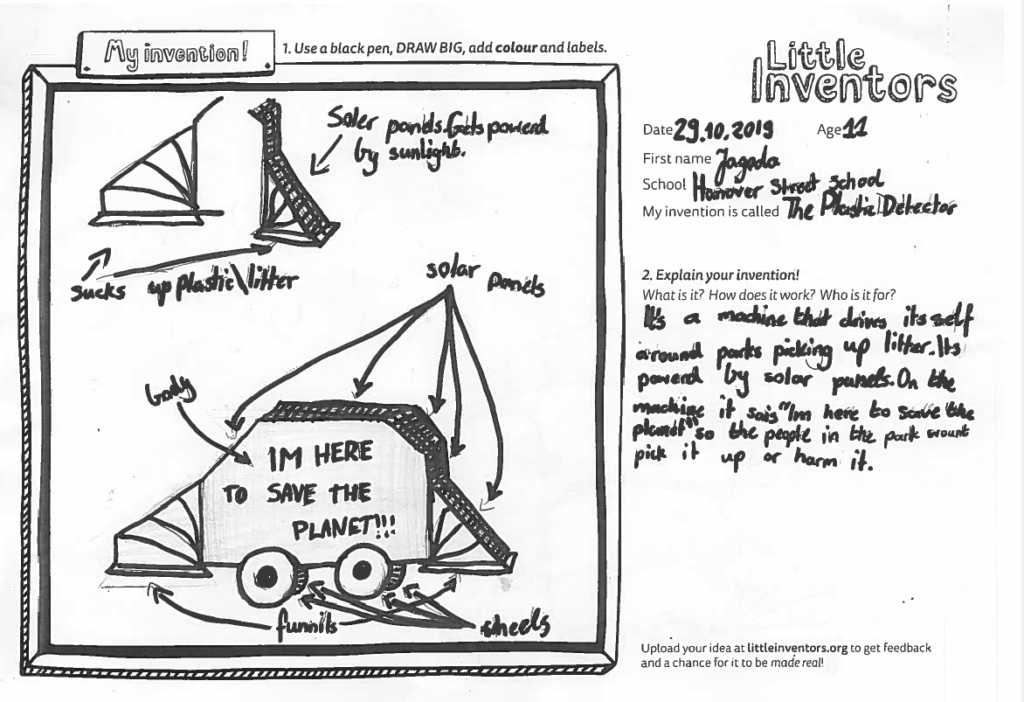 My invention!
1. Use a black pen, DRAW BIG, add colour and labels.
Soler panels. Gets powered
by sunlight.
sucks up plastic\litter
solar panels
body
IM HERE
TO SAVE THE
PLANET!!!
funnils
wheels
Little
Inventors
Date 29.10.2019 Age 11
First name Jagoda
School Hanover Street School
My invention is called The Plastic Detector
2. Explain your invention!
What is it? How does it work? Who is it for?
It's a machine that drives its self
around parks picking up litter. Its
powerd by solar panels. On the
machine it sais "Im here to save the
planet" so the people in the park wount
pick it up or harm it.
Upload your idea at littleinventors.org to get feedback
and a chance for it to be made real!